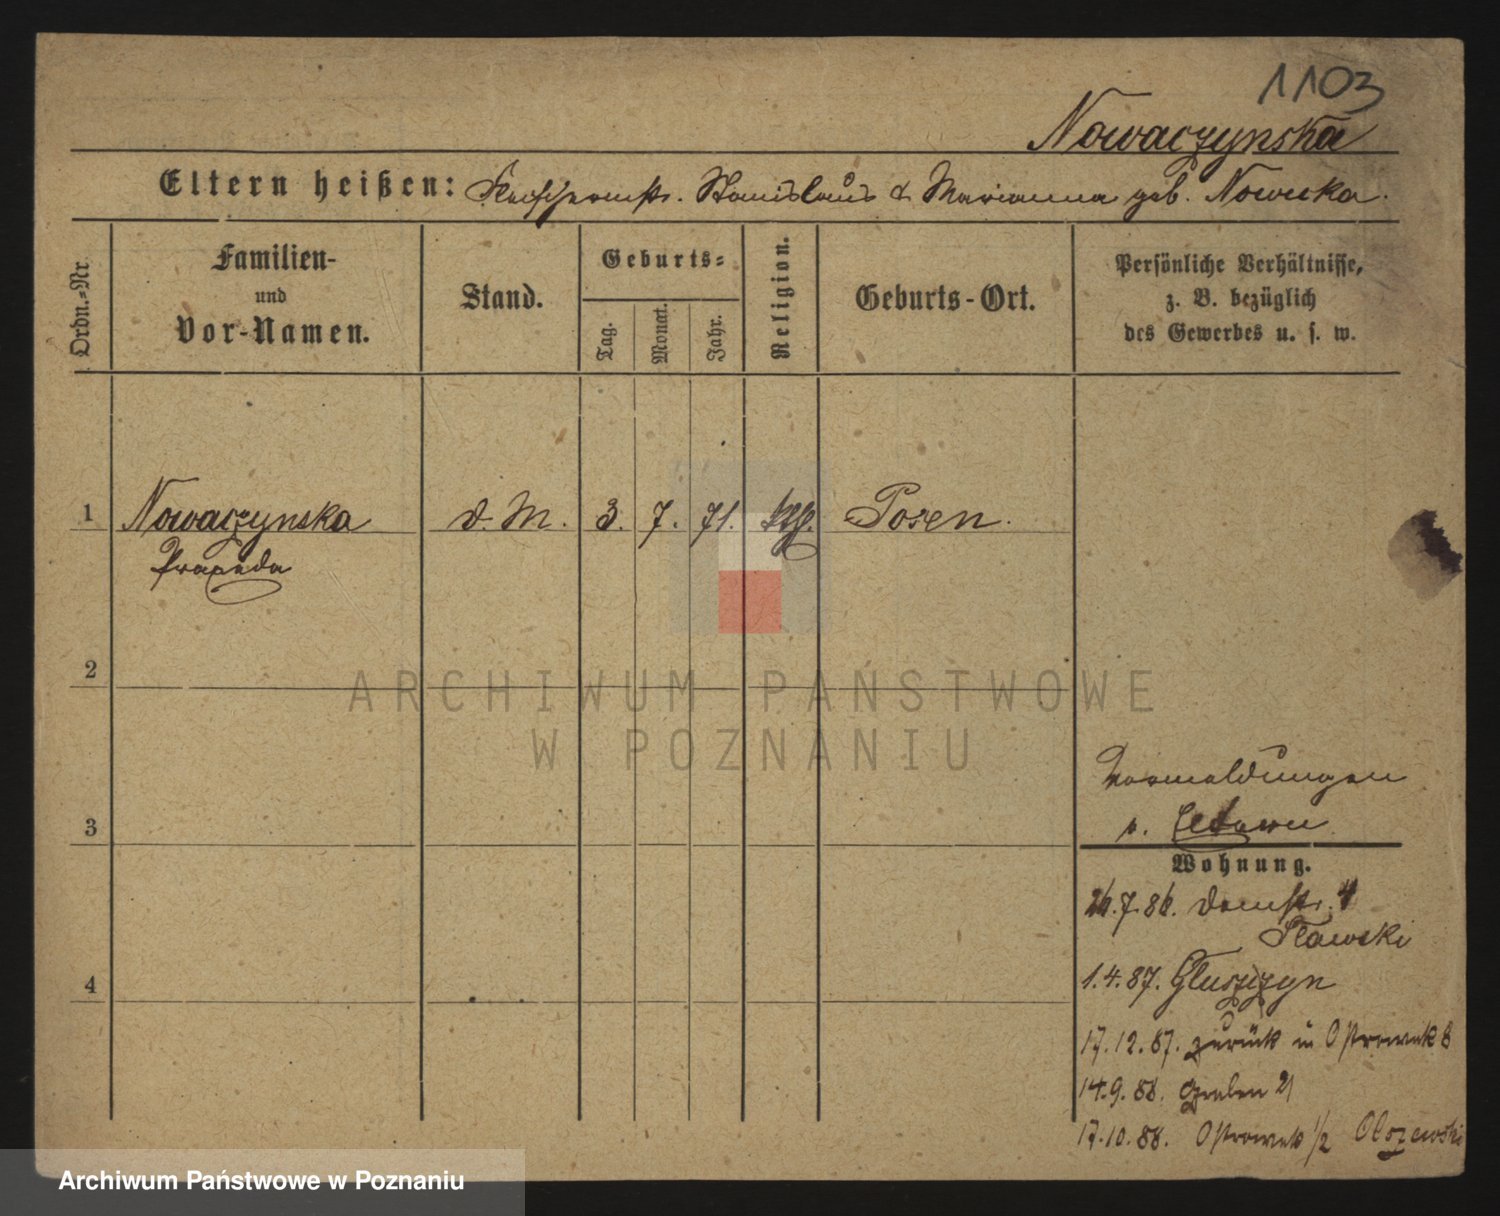 1103
Nowaczynska
Eltern heißen: Fleischermstr. Stanislaus & Marianna geb. Nowicka.
Ordn.-Nr.
Familien-
und
Vor-Namen.
Stand.
Geburts-
Tag. Monat. Jahr.
Religion.
Geburts-Ort.
Persönliche Verhältnisse,
z. B. bezüglich
des Gewerbes u. s. w.
1 Nowaczynska d. M. 3. 7. 71. kth. Posen.
Praxeda
2
3
4
ARCHIWUM PAŃSTWOWE
W POZNANIU
Vormeldungen
Wohnung.
26.7.86. Domstr. 4
Slawski
1.4.87. Gluszczyn
17.12.87. zurück in Ostrowek 8
14.9.88. Graben 21
17.10.88. Ostrowek 1/2 Olszewski
Archiwum Państwowe w Poznaniu